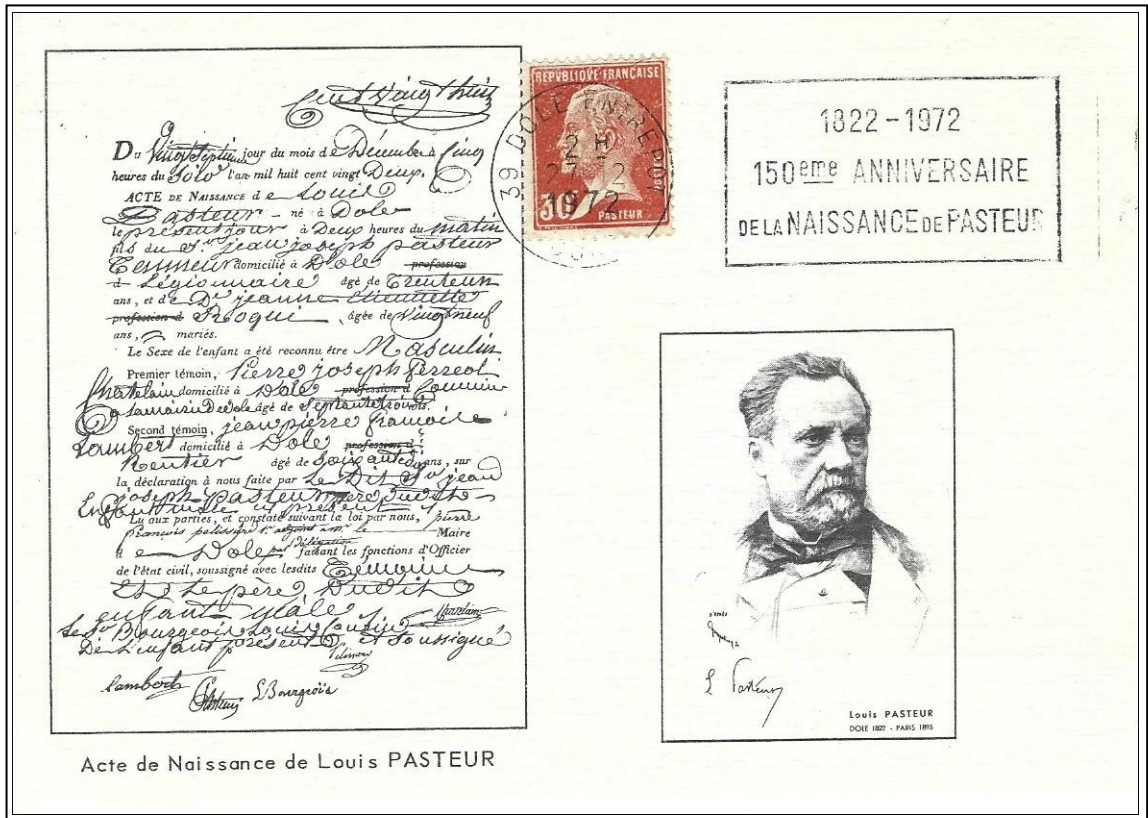 Cent Vingt huit
Du Vingt Septieme jour du mois de Décembre à Cinq
heures du Soir l'an mil huit cent vingt Deux.
ACTE DE NAISSANCE de Louis
Pasteur - né à Dole
le présent jour à Deux heures du matin
fils du Sr jean joseph pasteur
Tanneur domicilié à Dole profession
d Légionnaire âgé de Trente un
ans, et de De jeanne etiennette
profession d Roqui âgée de Vingt neuf
ans, mariés.
Le Sexe de l'enfant a été reconnu être Masculin
Premier témoin, Pierre joseph ferreol
Chatelain domicilié à Dole profession d Commis
a Lamairie Dedole âgé de Septante trois ans.
Second témoin, jean pierre francois
Lambert domicilié à Dole profession d
Rentier âgé de Soixante ans, sur
la déclaration à nous faite par Le Dit Sr jean
joseph Pasteur père dudit
Enfant mâle présent
Lu aux parties, et constaté suivant la loi par nous, pierre
françois Maire
à Dole par délégation faisant les fonctions d'Officier
de l'état civil, soussigné avec lesdits Témoins
Et Le père Dudit
enfant mâle
Le Sr Bourgeois Louis Cousin
De L'enfant présent et soussigné
Chatelain
Lambert Pasteur L Bourgeois
Acte de Naissance de Louis PASTEUR
REPVBLIQVE FRANÇAISE
30 PASTEUR
39 DOLE ENTREPOT
2 H
1972
1822 - 1972
150eme ANNIVERSAIRE
DE LA NAISSANCE DE PASTEUR
d'après
L Pasteur
Louis PASTEUR
DOLE 1822 - PARIS 1895